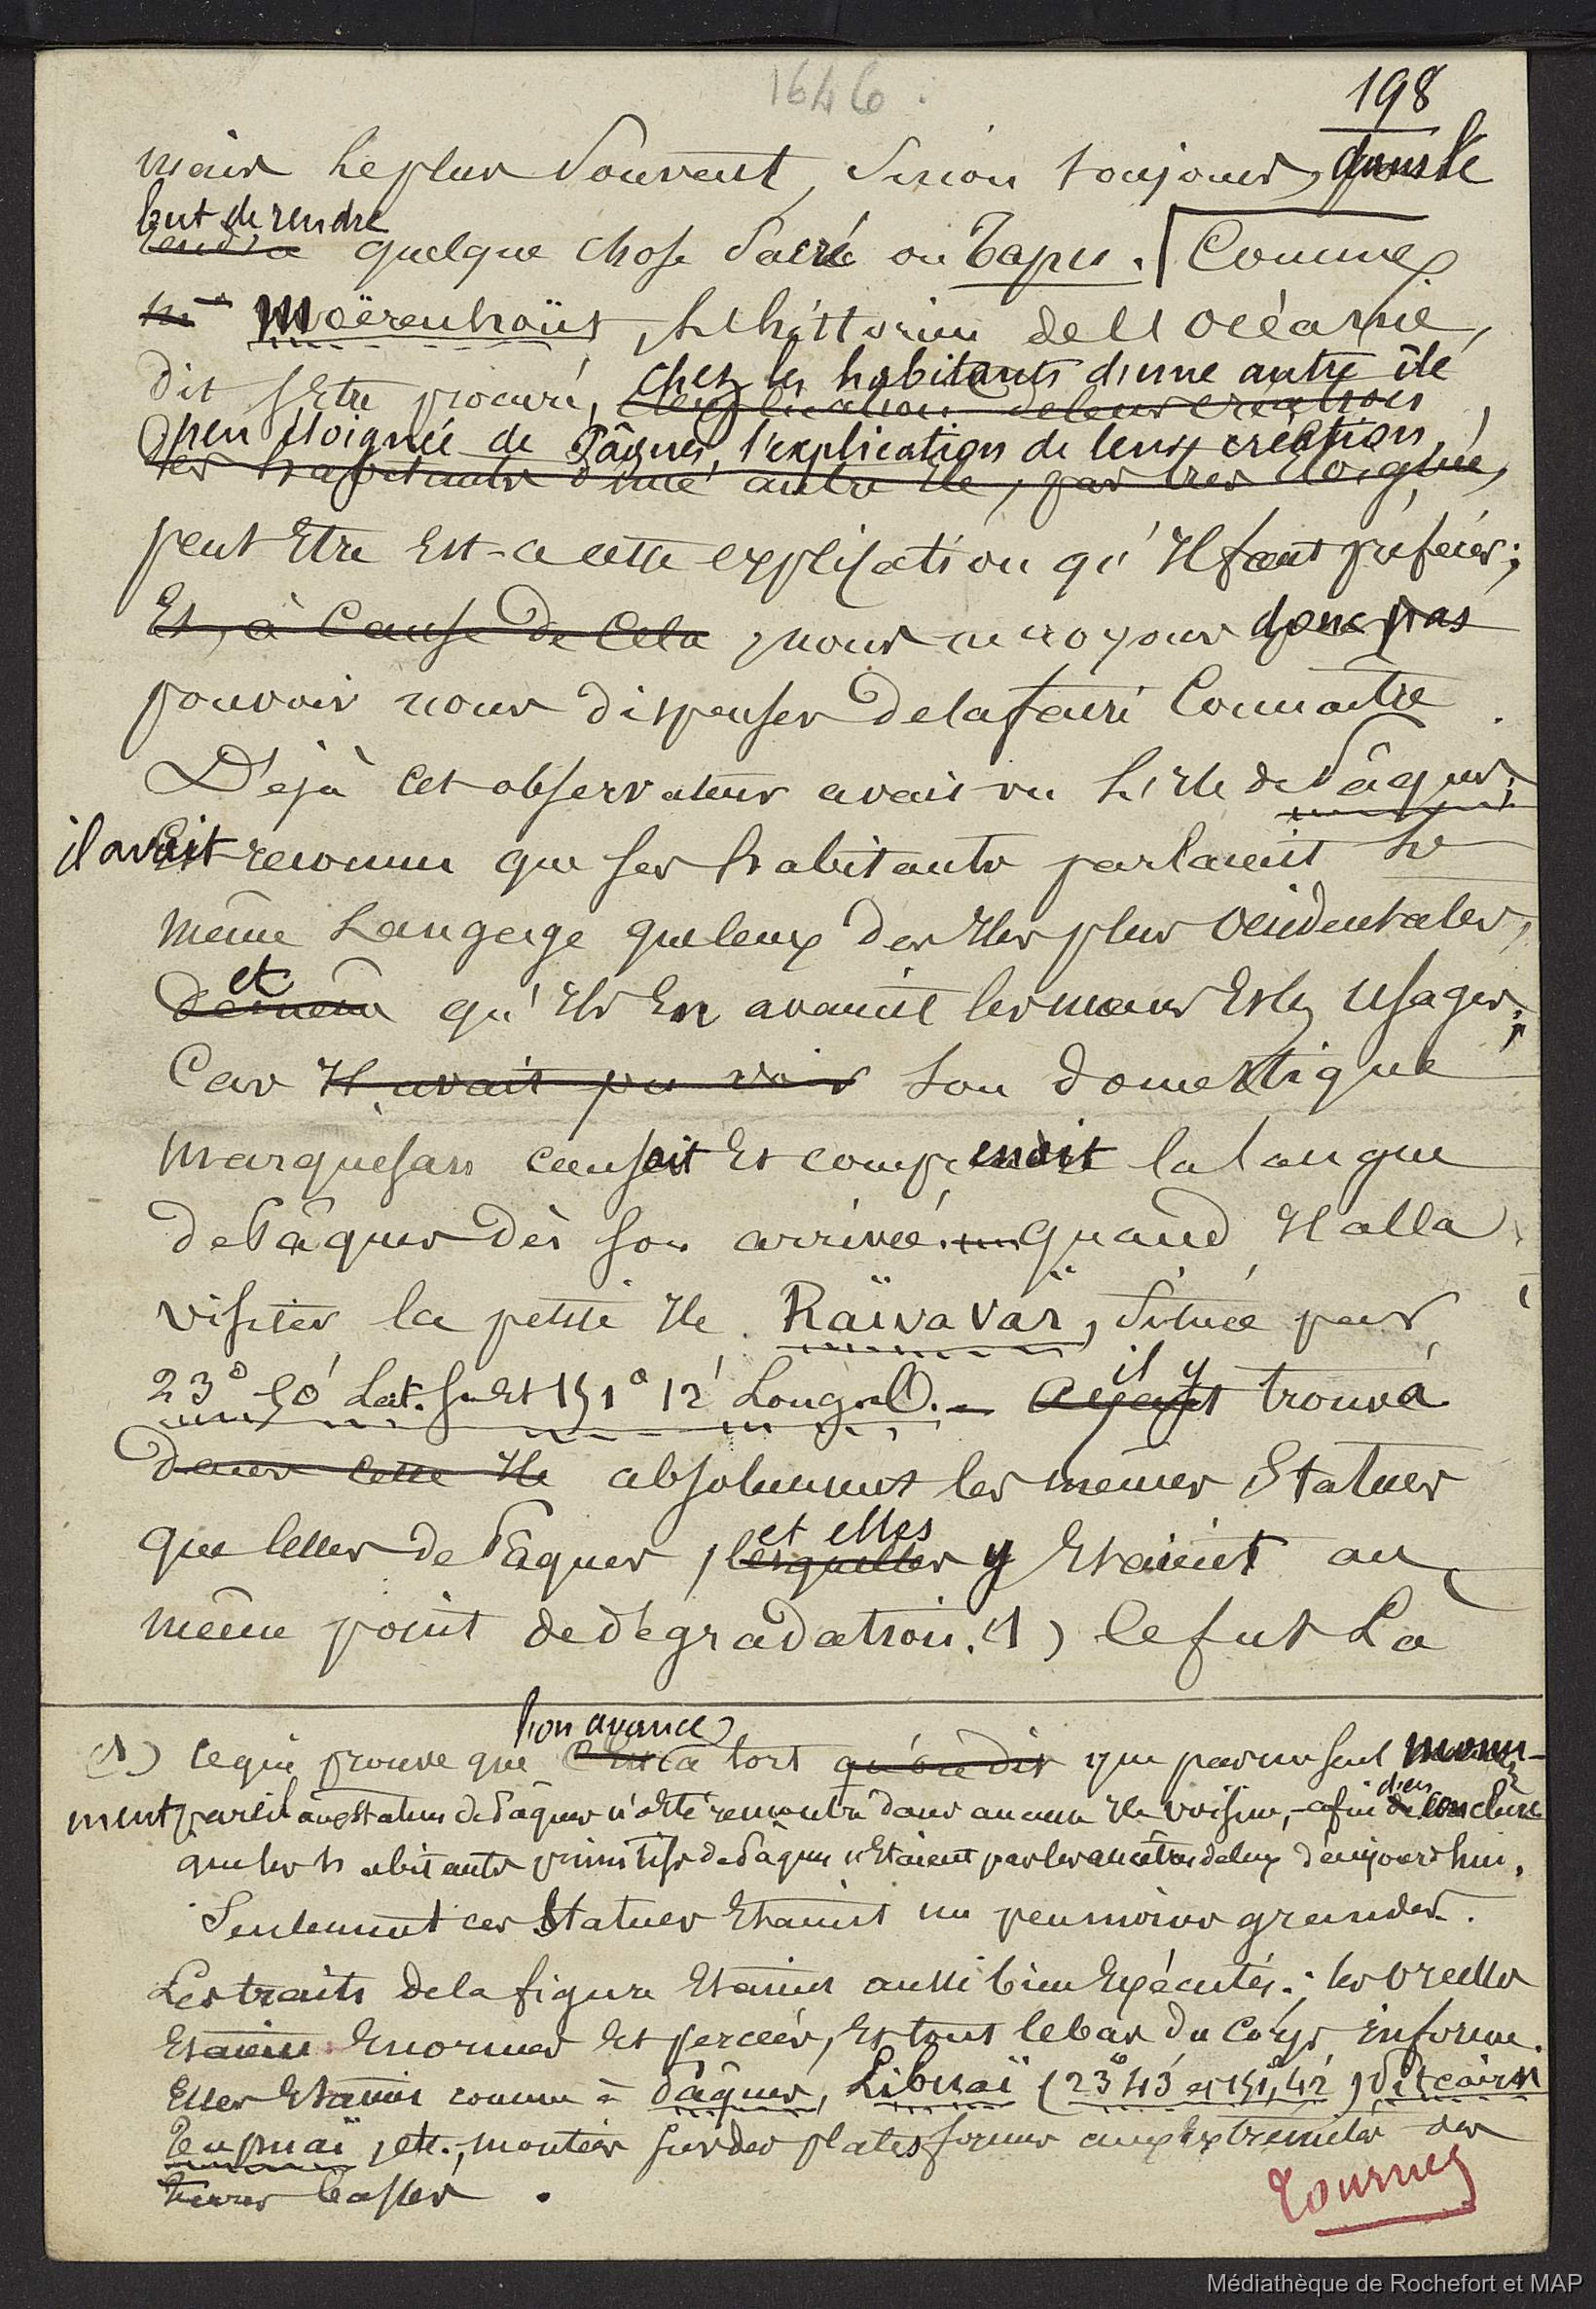 1646.
198
mais le plus souvent, sinon toujours, dans le
but de rendre
quelque chose sacré ou Tapu. [Comme
Moërenhoüt, l'historien de l'Océanie,
dit s'être procuré, chez les habitants d'une autre île
l'explication de leur création
peu éloignée de Pâques, l'explication de leur création,
des habitants d'une autre île, pas très éloignée,
peut être est-ce cette explication qu'il faut préférer;
Et, à cause de cela, nous ne croyons donc pas
pouvoir nous dispenser de la faire connaître.
Déjà cet observateur avait vu l'île de Pâques;
il avait reconnu que ses habitants parlaient le
même langage que ceux des îles plus occidentales,
et
de même qu'ils en avaient les mœurs et les usages;
Car il avait pu voir son domestique
marquésan causait et comprenait la langue
de Pâques dès son arrivée. quand il alla
visiter la petite île Raïvavaï, située par
23° 50' Lat. S. et 151° 12' Long. O. -
il y
ayant trouva
dans cette île absolument les mêmes statues
et elles
que celles de Pâques, lesquelles y étaient au
même point de dégradation. (1) Ce fut là
l'on avance
(1) Ce qui prouve que c'est à tort qu'on a dit que pas un seul monu-
d'en
ment pareil aux statues de Pâques n'a été rencontré dans aucune île voisine, - afin de conclure
que les habitants primitifs de Pâques n'étaient pas les ancêtres de ceux d'aujourd'hui.
Seulement ces statues étaient un peu moins grandes.
Les traits de la figure étaient aussi bien exécutés; les oreilles
étaient énormes et percées, et tout le bas du corps informe.
Elles étaient comme à Pâques, (23° 43' et 151, 42') Pitcairn
etc., montées sur des plates formes aux extrémités des
terres basses.
Tournez
Médiathèque de Rochefort et MAP